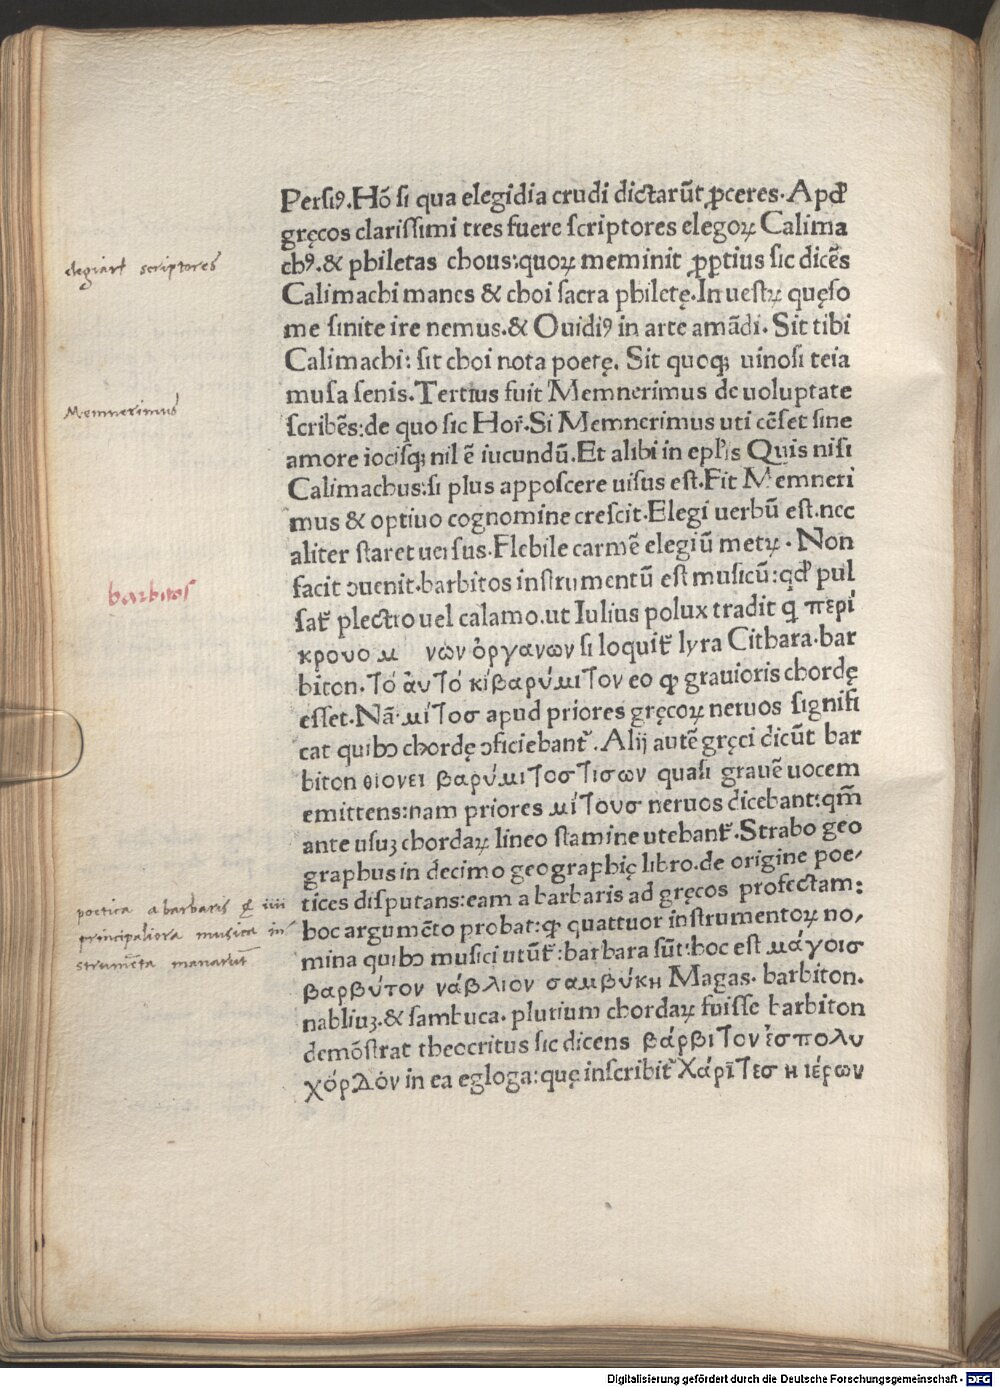 Persiꝰ.Hō si qua elegidia crudi dictarūt ꝓceres.Apđ
gręcos clarissimi tres fuere scriptores elegoꝝ Calima
chꝰ.& philetas chous:quoꝝ meminit ꝓꝑtius sic dicēs
Calimachi manes & choi sacra philetę.In uestꝝ quęso
me sinite ire nemus.& Ouidiꝰ in arte amādi.Sit tibi
Calimachi: sit choi nota poetę. Sit quoqꝫ uinosi teia
musa senis.Tertius fuit Memnerimus de uoluptate
scribēs:de quo sic Hor̃.Si Memnerimus uti cēset sine
amore iocisqꝫ nil ē iucundū.Et alibi in epl̃is Quis nisi
Calimachus:si plus apposcere uisus est.Fit Memneri
mus & optiuo cognomine crescit.Elegi uerbū est.nec
aliter staret uersus.Flebile carmē elegiū metꝝ. Non
facit ɔuenit.barbitos instrumentū est musicū:qđ pul
sat̃ plectro uel calamo.ut Iulius polux tradit q̄ περί
κρουο μ νών ὀργανων si loquit̃ lyra Cithara.bar
biton.Τό ἀυΤό κίβαρύμιΤον eo ꝙ grauioris chordę
esset.Nā.μίΤοσ apud priores gręcoꝝ neruos signifi
cat quibꝰ chordę ɔficiebant̃.Alij autē gręci dicūt bar
biton θιονει βαρύμιΤοσΤισων quasi grauē uocem
emittens:nam priores μίΤουσ neruos dicebant:qm̄
ante usuꝫ chordaꝝ lineo stamine utebant̃.Strabo geo
graphus in decimo geographię libro.de origine poe/
tices disputans:eam a barbaris ad gręcos profectam:
hoc argumēto probat:ꝙ quattuor instrumentoꝝ no/
mina quibꝰ musici utūt̃:barbara sūt:hoc est μάγοισ
βαρβύτον νάβλιον σαμβύκη Magas. barbiton.
nabliuꝫ.& sambuca. plurium chordaꝝ fuisse barbiton
demōstrat theocritus sic dicens βάρβιΤον ἐσπολυ
χόρΔόν in ea egloga:quę inscribit̃ ΧάρῐΤεσ η ιέρων
elegiarꝰ scriptores
Memnerimus
barbitos
poetica a barbaris & iiii
principaliora musica in
strumēta manarūt
Digitalisierung gefördert durch die Deutsche Forschungsgemeinschaft - DFG